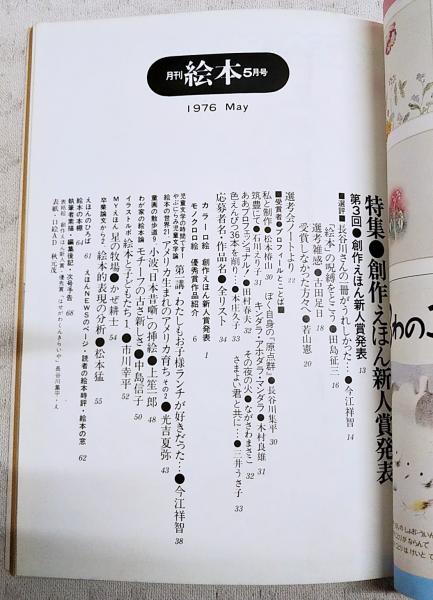 月刊 絵本 5月号
1976 May
特集●創作えほん新人賞発表
第3回●創作えほん新人賞発表 13
■選評●長谷川さんの一冊がうれしかった…●今江祥智 14
「絵本」の呪縛をとこう●田島征三 16
選考雑感●古田足日 18
受賞しなかった方々へ●若山憲 20
選考会ノートより 22
■受賞者●プロフィールとことば
私と制作●松本椿山 30
ぼく自身の「原点群」●長谷川集平 30
筑豊にて●石川えりこ 31
キンダラ・アホダラ・マンダラ●木村良雄 31
ああプロフェッショナル!●田村春夫 32
その夜の火●ながさわまさこ 32
色えんぴつ38本を削り…●本庄久子 33
さまよい君と共に…●三井うさ子 33
応募者名・作品名●全リスト 34
カラー口絵 創作えほん新人賞発表 1
モノクロ口絵 優秀賞作品紹介 6
児童文学の時間です
やぶにらみ児童文学論 第一講・わたしもお子様ランチが好きだった…●今江祥智 38
絵本の世界21 アメリカ生まれのアメリカ育ち その2●光吉夏弥 43
童画の散歩道9 小波「日本昔噺」の挿絵●上笙一郎 48
わが家の絵本論 モチーフの古さ新しさ●中島信子 50
イラストルポ 絵本と子どもたち●市川幸平 52
MYえほん 星の牧場のかぜ●耕士 54
卒業論文から2 絵本的表現の分析●松本猛 55
えほんのひろば 61
えほんNEWSのページ・読者の絵本時評・絵本の窓 62
絵本の本棚 64
執筆者素描・編集後記・次号予告 68
表紙・口絵AD 秋元茂